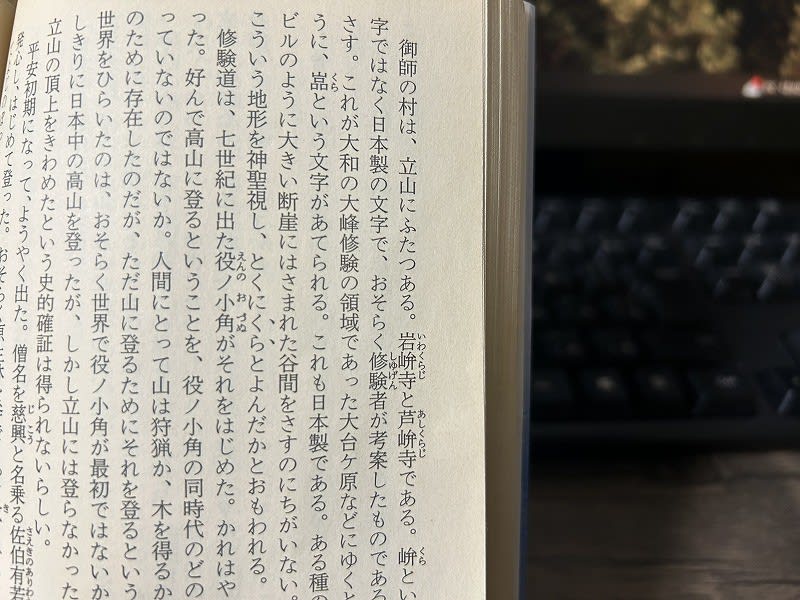 御師の村は、立山にふたつある。岩峅寺と芦峅寺である。峅とい
字ではなく日本製の文字で、おそらく修験者が考案したものである
さす。これが大和の大峰修験の領域であった大台ケ原などにゆくと
うに、嵓という文字があてられる。これも日本製である。ある種の
ビルのように大きい断崖にはさまれた谷間をさすのにちがいない。
こういう地形を神聖視し、とくにくらとよんだかとおもわれる。
修験道は、七世紀に出た役ノ小角がそれをはじめた。かれはや
った。好んで高山に登るということを、役ノ小角の同時代のどの
っていないのではないか。人間にとって山は狩猟か、木を得るか
のために存在したのだが、ただ山に登るためにそれを登るという
世界をひらいたのは、おそらく世界で役ノ小角が最初ではないか
しきりに日本中の高山を登ったが、しかし立山には登らなかった
立山の頂上をきわめたという史的確証は得られないらしい。
平安初期になって、ようやく出た。僧名を慈興と名乗る佐伯有若
発心し、はじめて登った。